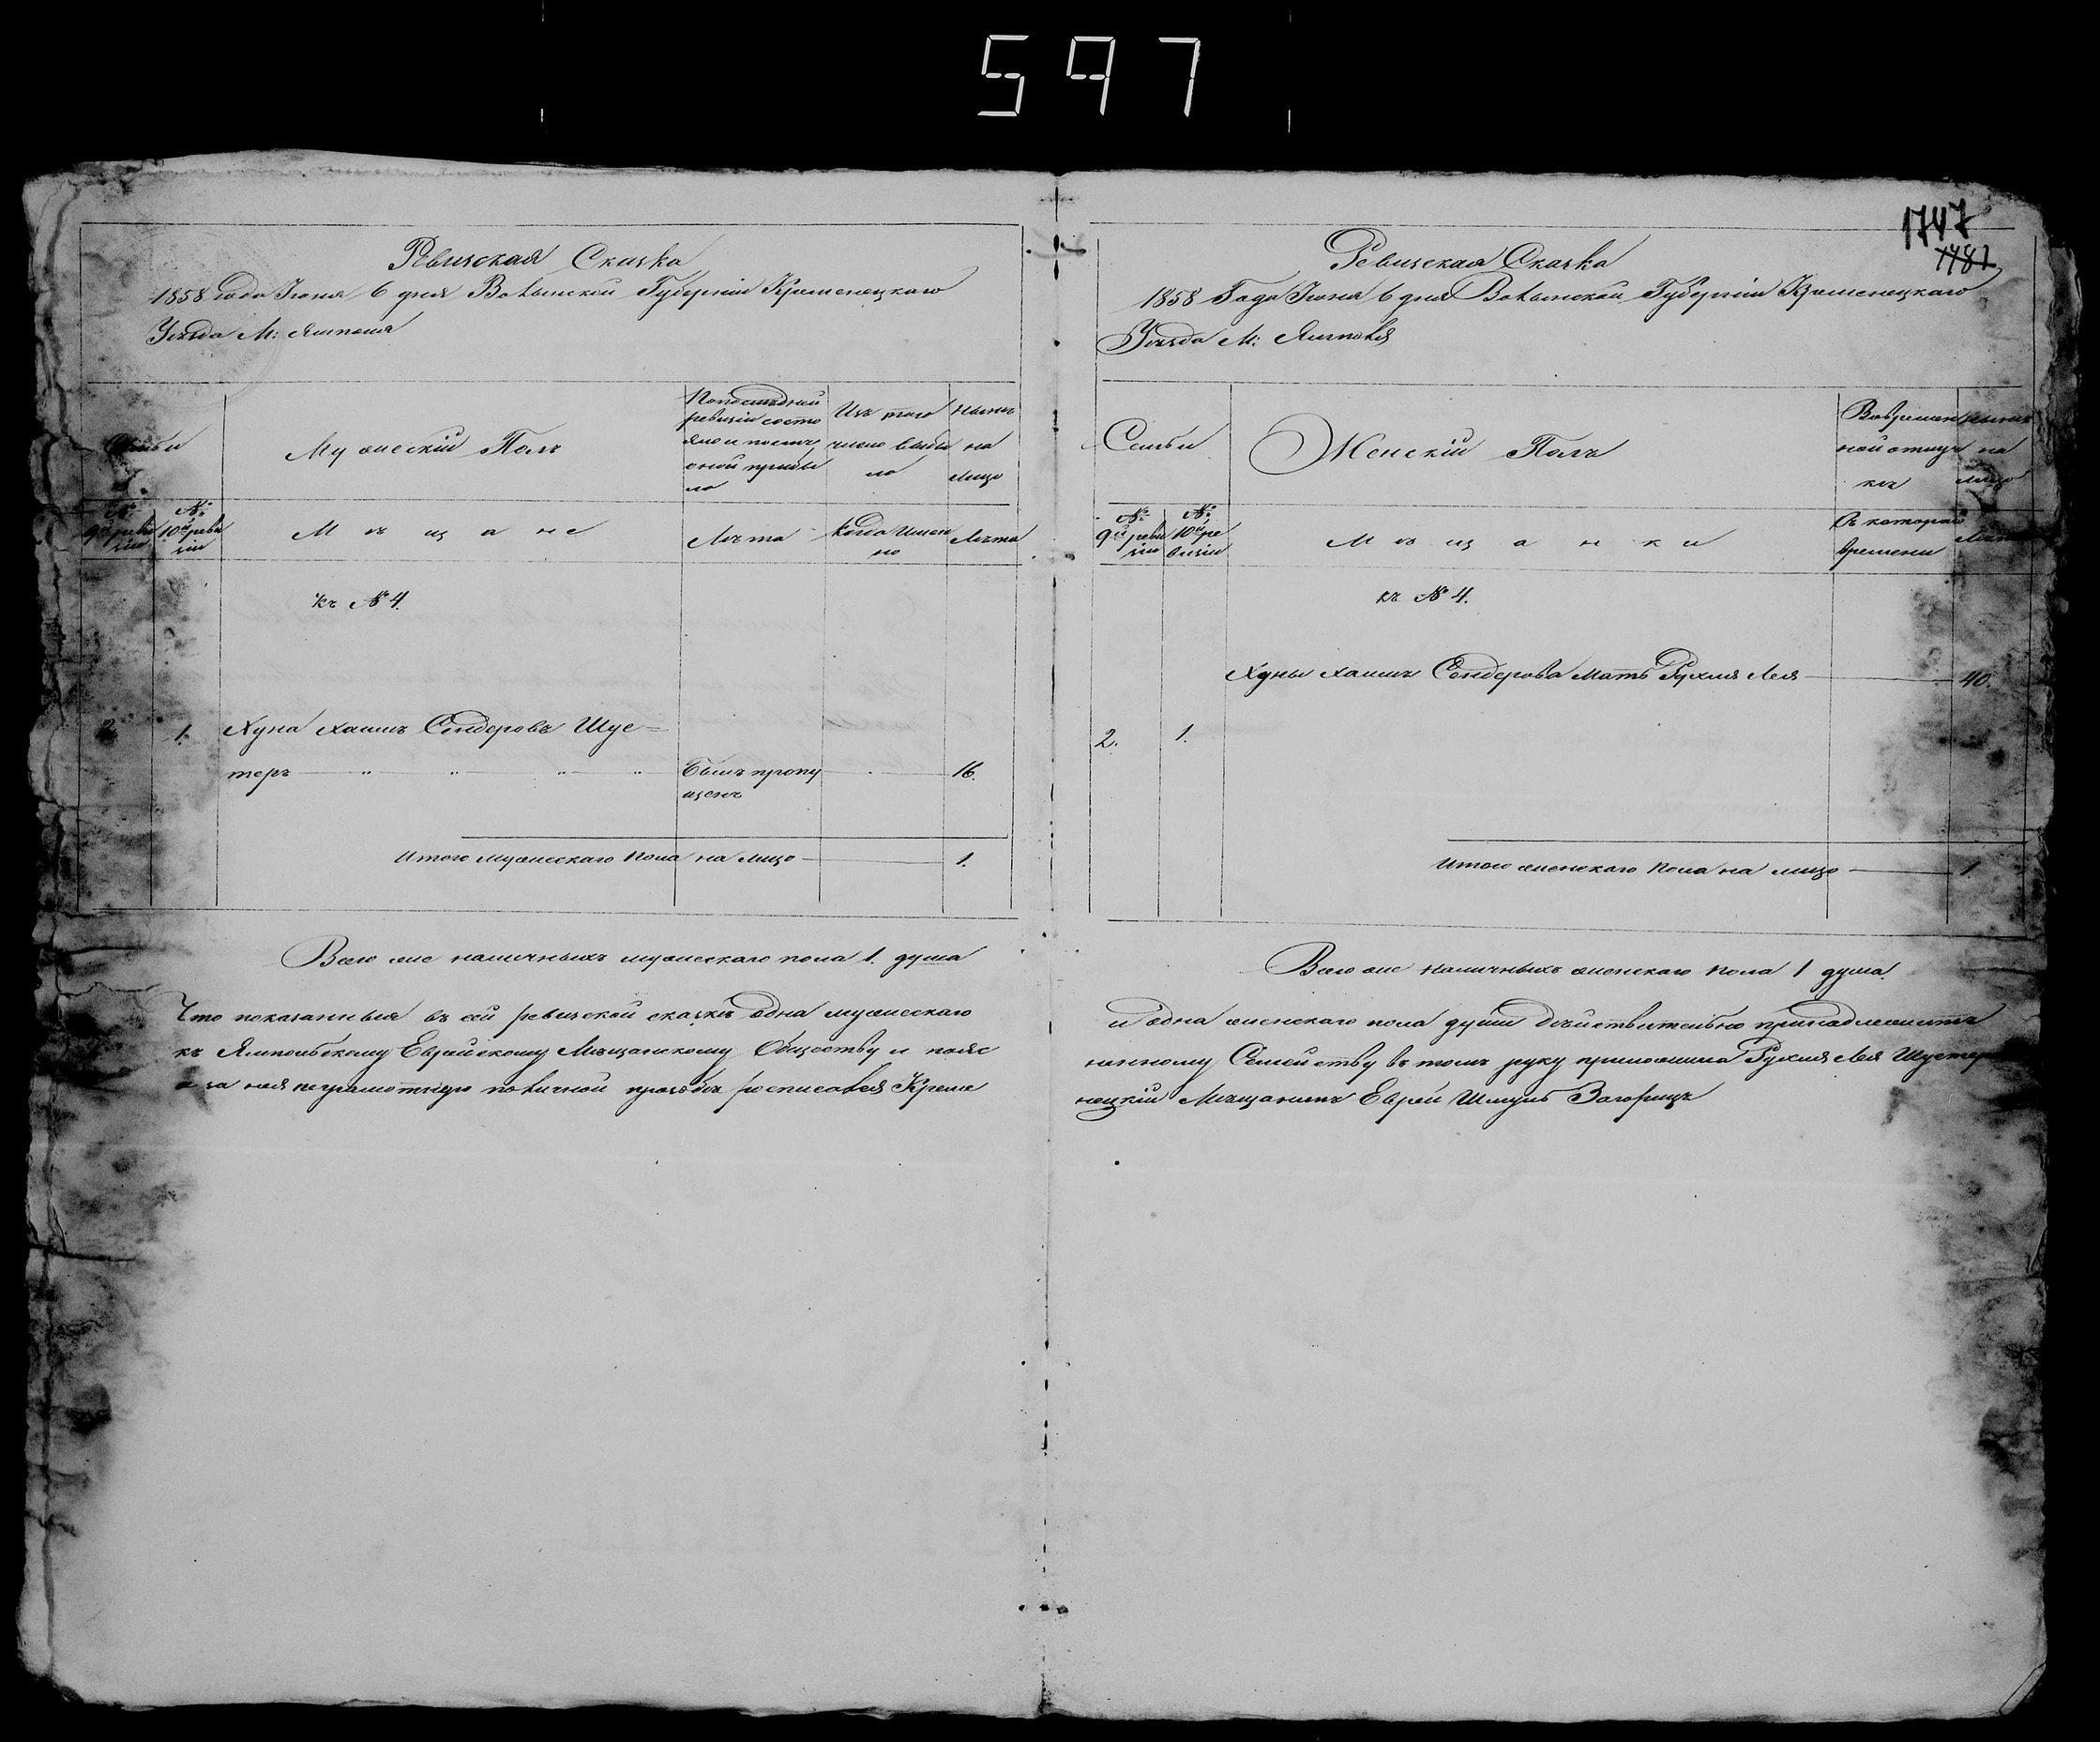 597
1747
1781
Ревизская Сказка
1858 года Іюня 6 дня Волынской Губерніи Кременецкаго
Уѣзда М: Ямполя
Семьи
Мужескій Полъ
По последней
ревизіи состо
яло и послѣ
оной прибы
ло
Изъ того
числа выбы
ло
Нынѣ
на
лицо
№
9й реви
зіи
№
10й реви
зіи
Мѣщане
Лѣта
Когда Имен
но
Лѣта
къ № 4.
2. 1. Хуна Хаимъ Сендеровъ Шус=
теръ Былъ пропу 16.
щенъ
Итого мужескаго пола на лицо 1.
Всего же наличныхъ мужескаго пола 1. душа
Что показанныя въ сей ревизской сказкѣ одна мужескаго
къ Ямпольскому Еврейскому Мѣщанскому Обществу и
а за нея неграмотную по личной прозьбѣ росписался Креме
Ревизская Сказка
1858 Года Іюня 6 дня Волынской Губерніи Кременецкаго
Уѣзда М: Ямполя
Семьи
Женскій Полъ
Во времен
ной отлуч
кѣ
Нынѣ
на
лицо
№
9й реви
зіи
№
10й ре
визіи
Мѣщанки
Съ котораго
времени
Лѣта
къ № 4.
Хуны Хаима Сендерова Мать Рухля Лея 40.
2. 1.
Итого женскаго пола на лицо 1.
Всего же наличныхъ женскаго пола 1 душа.
и одна женскаго пола души дѣйствительно принадлежитъ
Семейству въ томъ руку приложила Рухля Лея Шустер
нецкій Мѣщанинъ Еврей Шмуль Загорицъ